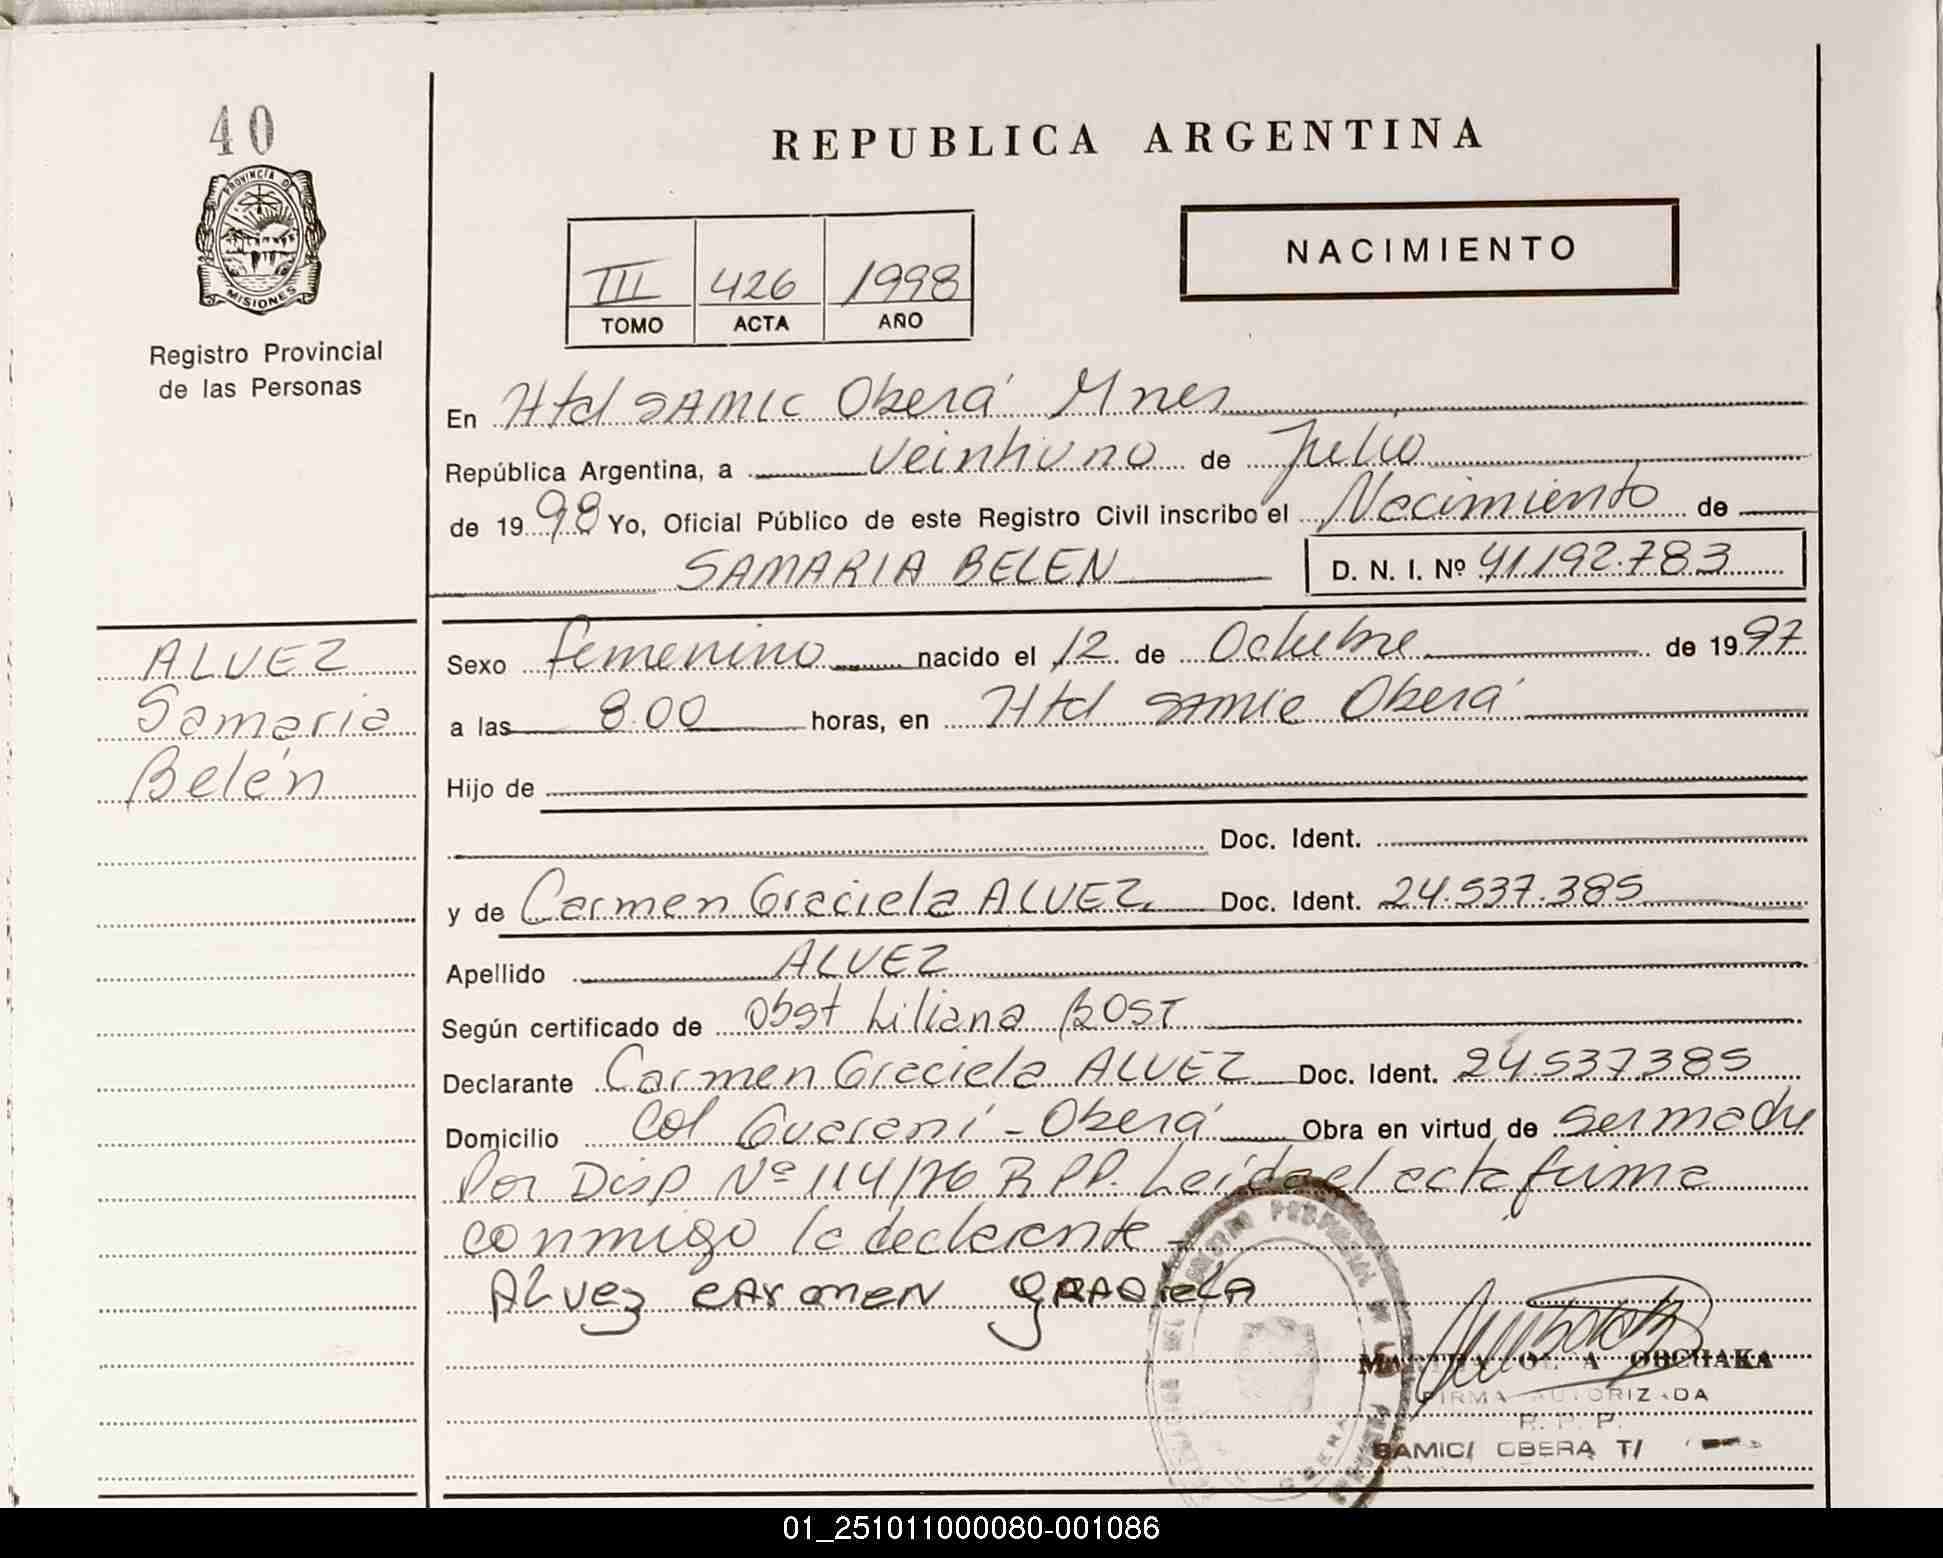 40
REPUBLICA ARGENTINA
PROVINCIA DE
MISIONES
Registro Provincial
de las Personas
III 426 1998
TOMO ACTA AÑO
NACIMIENTO
En Htal SAMIC Oberá Mnes
República Argentina, a veintiuno de Julio
de 1998 Yo, Oficial Público de este Registro Civil inscribo el Nacimiento de
SAMARIA BELEN D. N. I. Nº 41.192.783
ALVEZ
Samaria
Belén
Sexo femenino nacido el 12 de Octubre de 1997
a las 8.00 horas, en Htal SAMIC Oberá
Hijo de
Doc. Ident.
y de Carmen Graciela ALVEZ Doc. Ident. 24.537.385
Apellido ALVEZ
Según certificado de Obst Liliana BOST
Declarante Carmen Graciela ALVEZ Doc. Ident. 24.537.385
Domicilio Col Guaraní - Oberá Obra en virtud de ser madre
Por Disp Nº 114/76 R.PP. Leída el acta firma
conmigo la declarante
Alvez carmen graciela
REGISTRO PROVINCIAL DE LAS
OBERA
FIRMA AUTORIZADA
R. P. P.
SAMIC/ OBERA T/
01_251011000080-001086